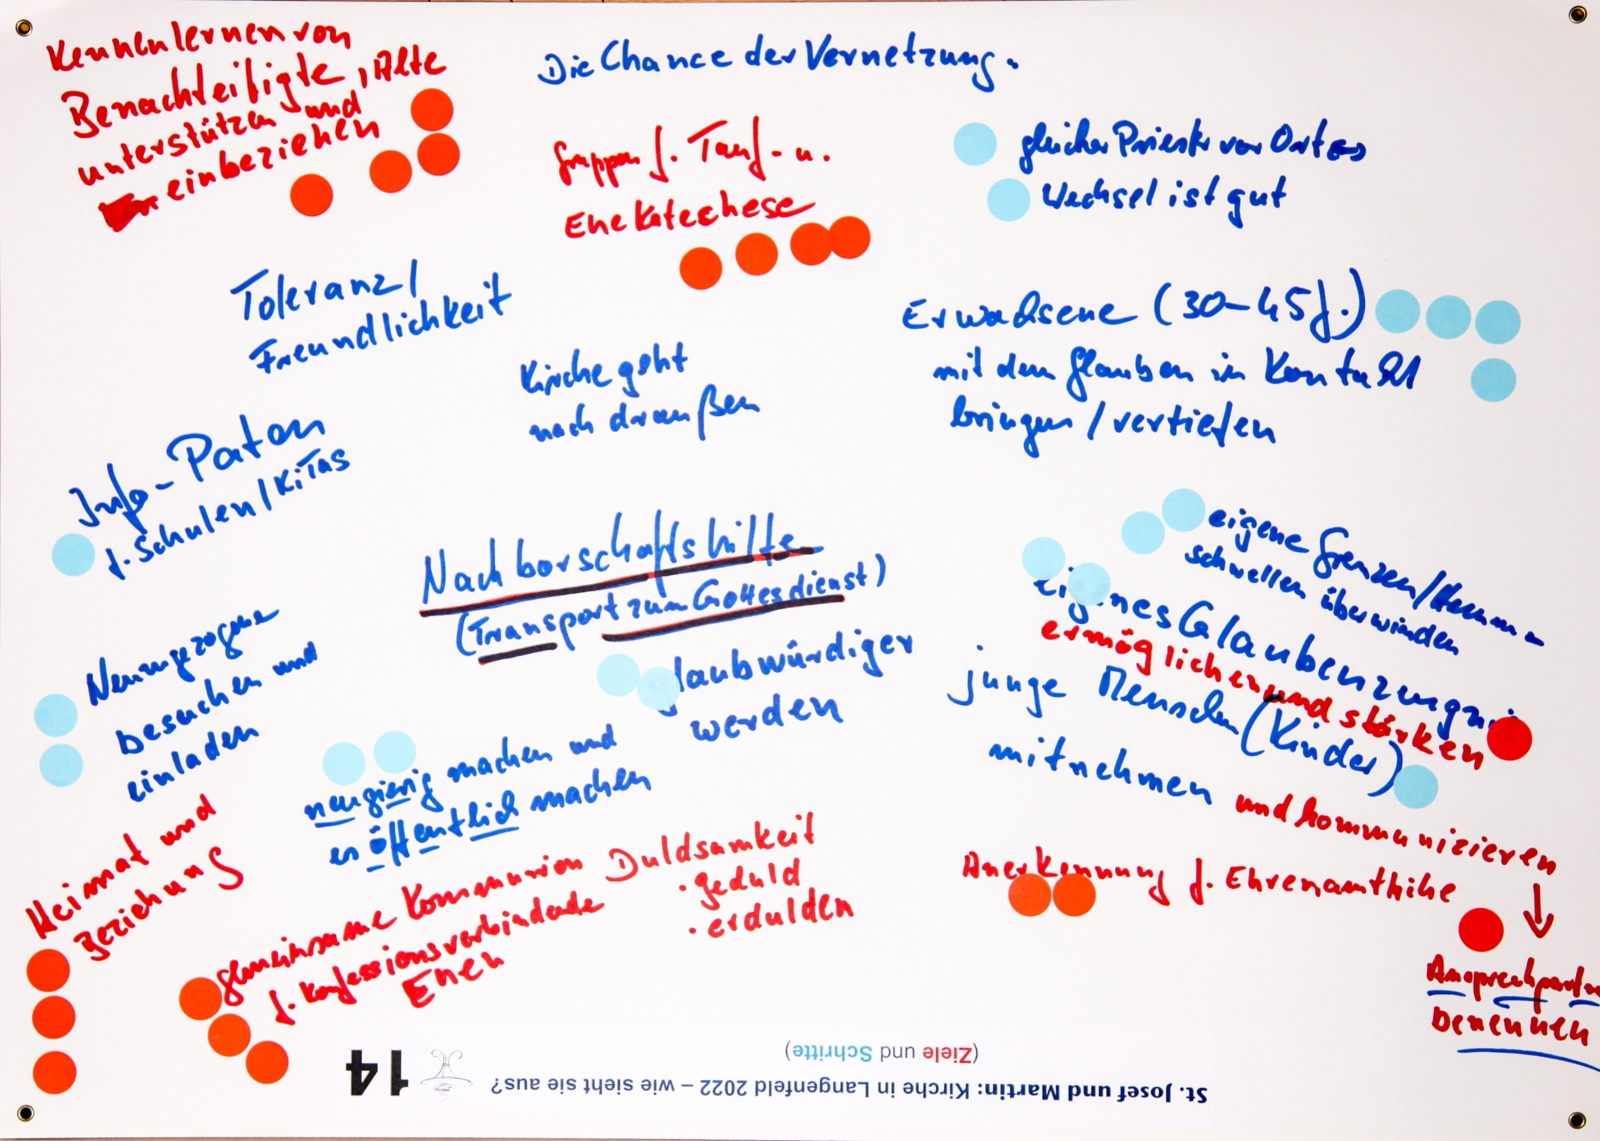 Kennenlernen von
Benachteiligte, Alte
unterstützen und
einbeziehen
Die Chance der Vernetzung.
Gruppen f. Tauf- u.
Ehekatechese
gleicher Priester vor Ort
Wechsel ist gut
Toleranz/
Freundlichkeit
Kirche geht
nach draußen
Erwachsene (30-45 J.)
mit dem Glauben in Kontakt
bringen / vertiefen
Info-Paten
f. Schulen/KiTas
Nachborschaftshilfe
(Transport zum Gottesdienst)
eigene Grenzen/Hemm-
schwellen überwinden
eigenes Glaubenzeugnis
ermöglichen und stärken
junge Menschen (Kinder)
mitnehmen und kommunizieren
Neuzugezogene
besuchen und
einladen
glaubwürdiger
werden
neugierig machen und
es öffentlich machen
Heimat und
Beziehung
gemeinsame Kommunion
f. Konfessionsverbindende
Ehen
Duldsamkeit
· geduld
· erdulden
Anerkennung f. Ehrenamtliche
Ansprechpartne
benennen
St. Josef und Martin: Kirche in Langenfeld 2022 – wie sieht sie aus?
(Ziele und Schritte)
14